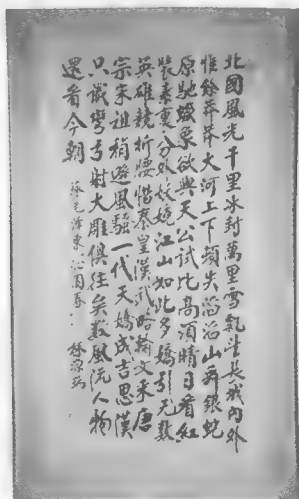 北國風光千里冰封萬里雪飄望長城內外
惟餘莽莽大河上下頓失滔滔山舞銀蛇
原馳蠟象欲與天公試比高須晴日看紅
裝素裹分外妖嬈江山如此多嬌引无数
英雄競折腰惜秦皇漢武略輸文采唐
宗宋祖稍遜風騷一代天嬌成吉思漢
只識彎弓射大雕俱往矣数風流人物
還看今朝
錄毛澤東沁園春